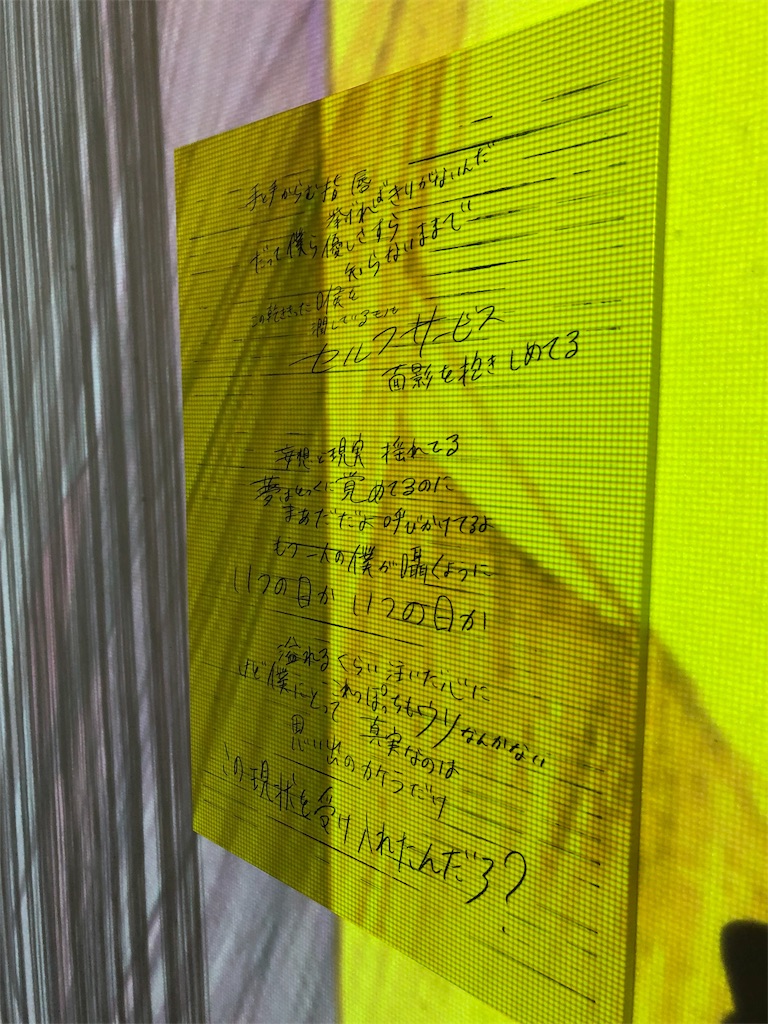 手と手からむ指 唇
挙げればきりがないんだ
だって僕ら優しさすら
知らないままで
この乾ききった口座を
潤しているモノ
セルフサービス
面影を抱きしめてる
妄想と現実 揺れてる
夢はとっくに覚めてるのに
まあだだよ 呼びかけてるよ
もう一人の僕が囁くように
いつの日か いつの日か
溢れるくらい注いだ心に
これっぽっちもウソなんかない
けど僕にとって 真実なのは
思い出のカケラだけ
この現状を受け入れたんだろ?